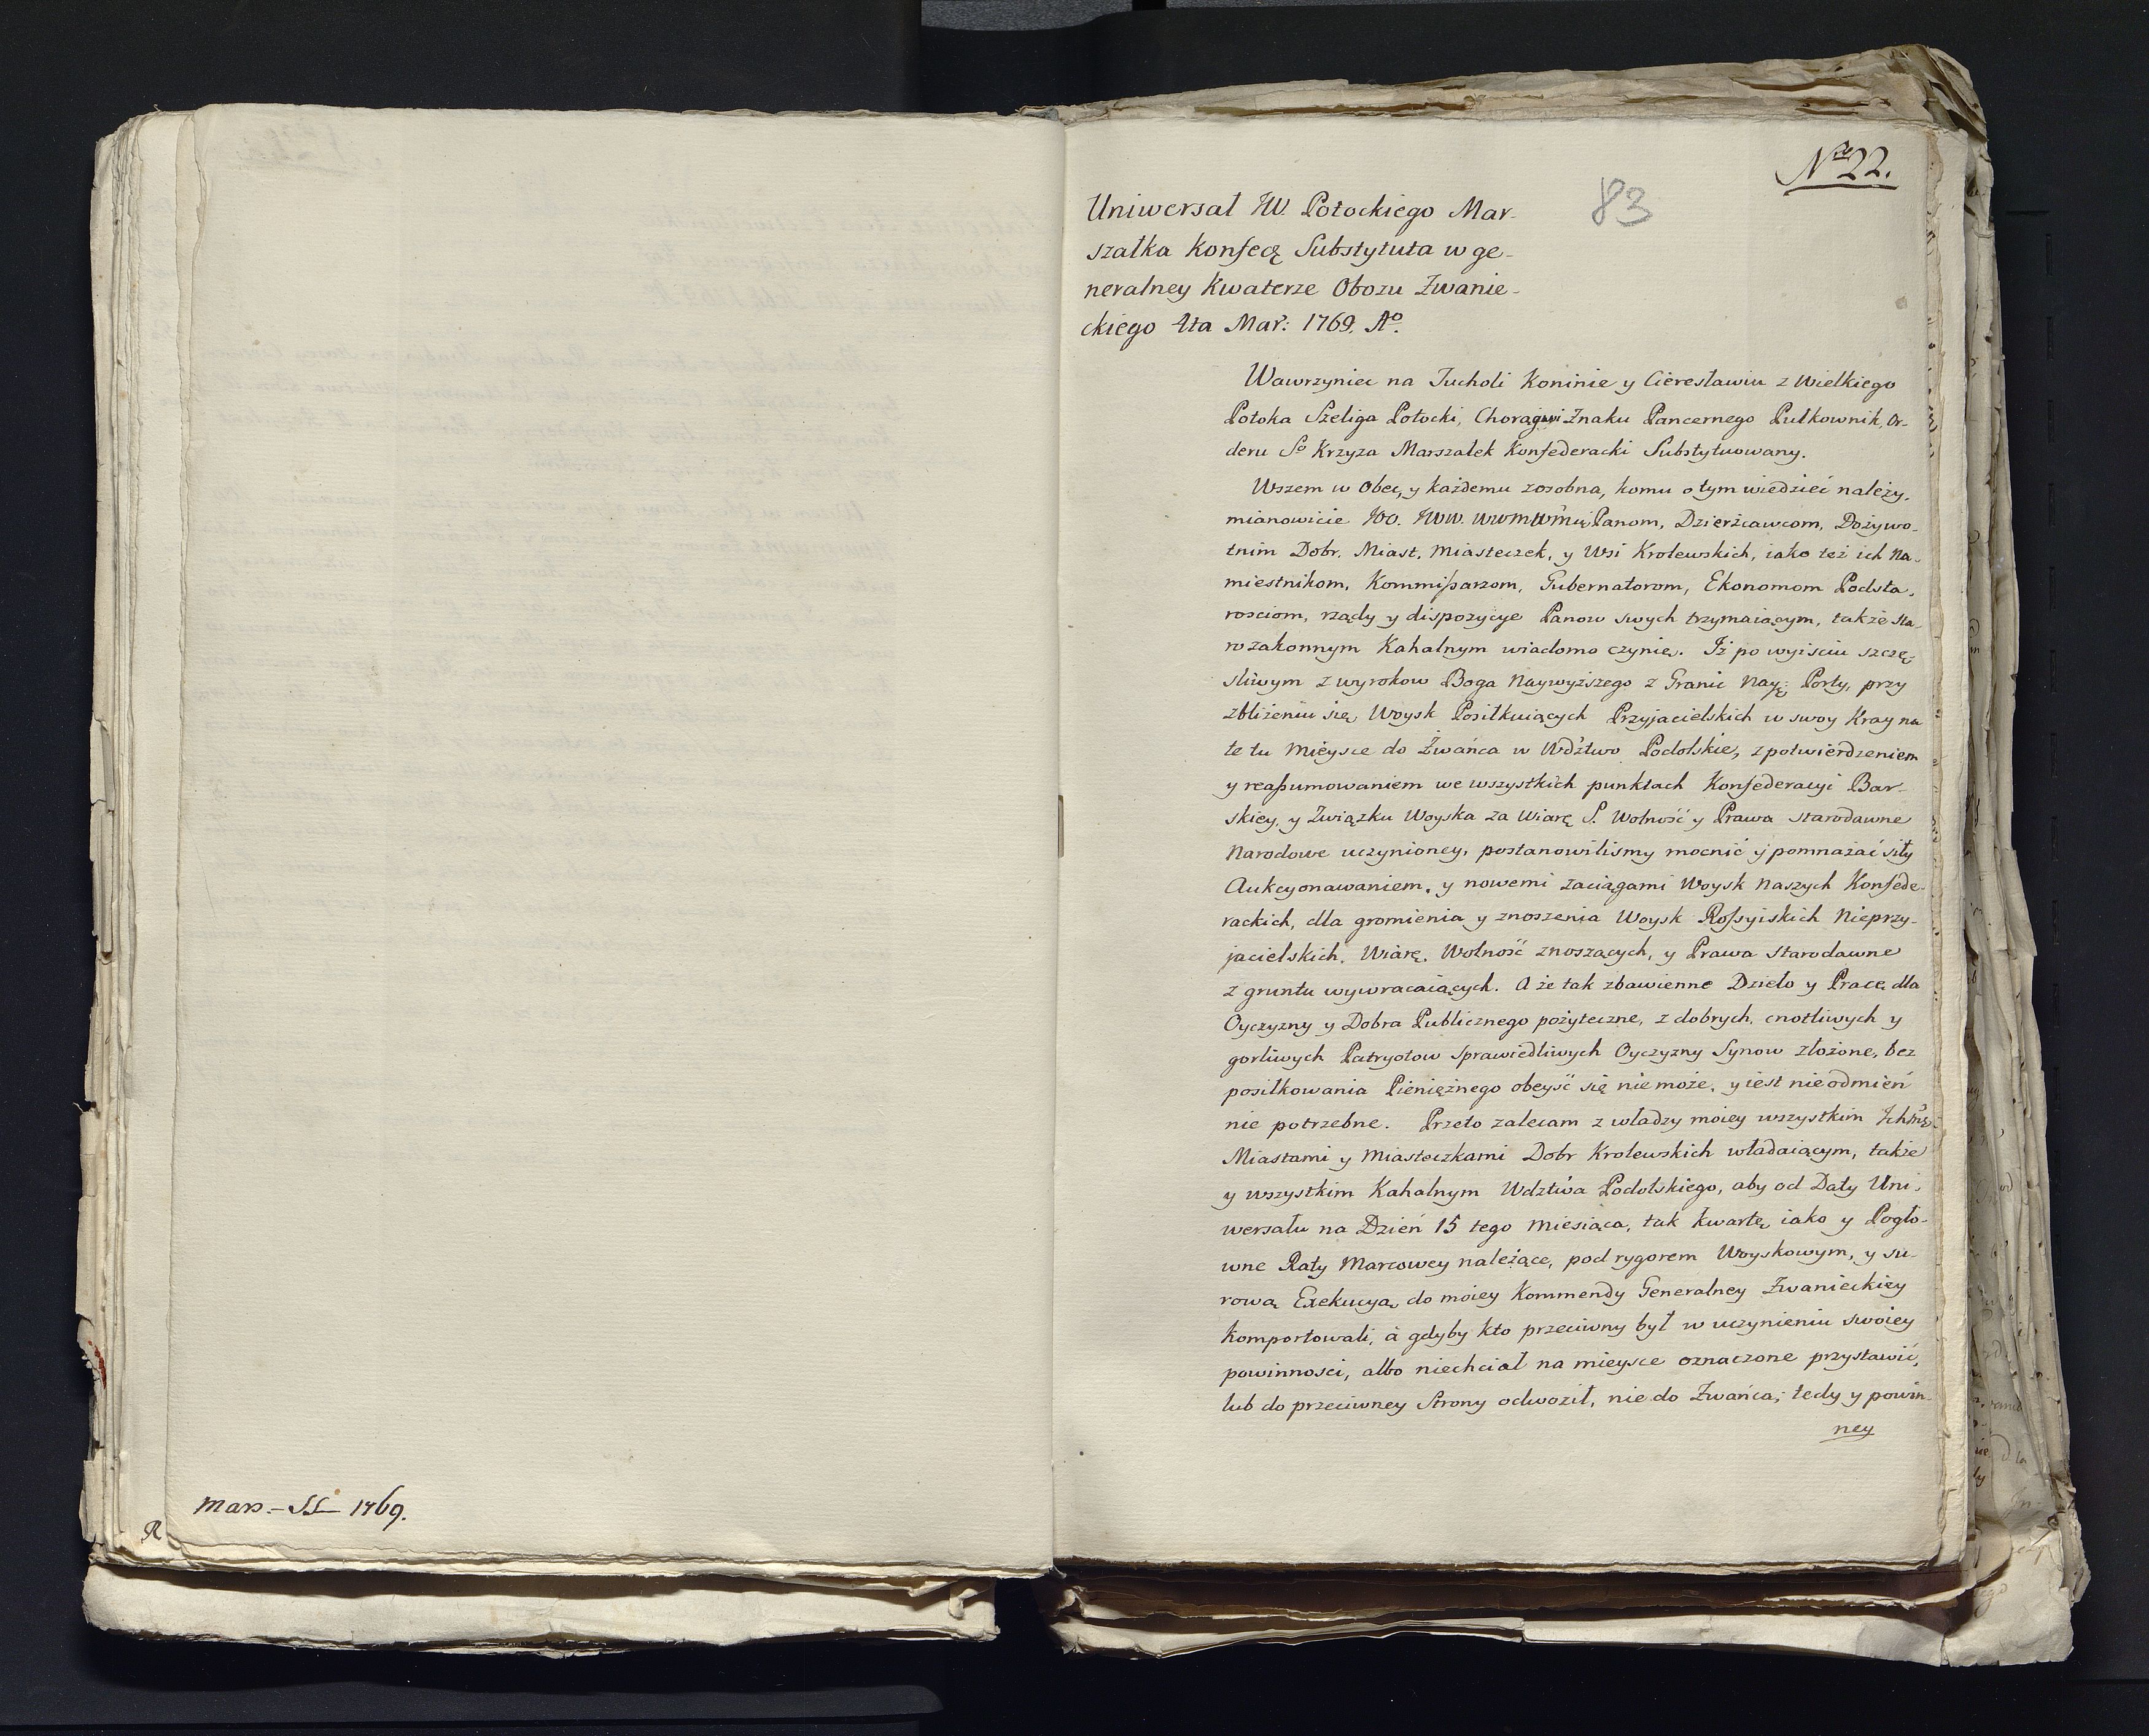 mars. – SS – 1769.
R
Nro 22.
83
Uniwersał JW. Potockiego Mar-
szałka Konfed: Substytuta w ge-
neralney Kwaterze Obozu Zwanie-
ckiego 4ta Mar: 1769. Ao.
Wawrzyniec na Tucholi Koninie y Cieresławiu z Wielkiego
Potoka Szeliga Potocki, Chorągwi Znaku Pancernego Pułkownik, Or-
deru So Krzyza Marszałek Konfederacki Substytuowany.
Wszem w Obec, y każdemu zosobna, komu o tym wiedzieć należy,
mianowicie JOO. JWW. Panom, Dzierżcawcom, Dożywo-
tnim Dobr. Miast, Miasteczek, y Wsi Krolewskich, iako też ich Na-
miestnikom, Kommissarzom, Gubernatorom, Ekonomom Podsta-
rosciom, rządy y dispozycye Panow swych trzymaiącym, także Sta-
rozakonnym Kahalnym wiadomo czynię. Iż po wyisciu szczę-
sliwym z wyrokow Boga Naywyższego z Granic Nayj: Porty, przy
zbliżeniu się Woysk Posiłkuiących Przyjacielskich w swoy Kray na
te tu Mieysce do Żwańca w Wdztwo Podolskie, z potwierdzeniem
y reassumowaniem we wszystkich punktach Konfederacyi Bar-
skiey, y Związku Woyska za Wiarę S. Wolność y Prawa starodawne
Narodowe uczynioney, postanowilismy mocnić y pomnażać siły
Aukcyonawaniem, y nowemi zaciągami Woysk Naszych Konfede-
rackich, dla gromienia y znoszenia Woysk Rossyiskich Nieprzy-
jacielskich, Wiarę, Wolność znoszących, y Prawa Starodawne
z gruntu wywracaiących. A że tak zbawienne Dzieło y Prace dla
Oyczyzny y Dobra Publicznego pożyteczne, z dobrych, cnotliwych y
gorliwych Patryotow sprawiedliwych Oyczyzny Synow złożone, bez
posiłkowania Pieniężnego obeyść się nie może, y iest nieodmień
nie potrzebne. Przeto zalecam z władzy moiey wszystkim Ichmę
Miastami y Miasteczkami Dobr Krolewskich władaiącym, także
y wszystkim Kahalnym Wdztwa Podolskiego, aby od Daty Uni-
wersału na Dzień 15 tego Miesiąca, tak kwartę iako y Pogło-
wne Raty Marcowey należące, pod rygorem Woyskowym, y su-
rową Exekucyą do moiey Kommendy Generalney Zwanieckiey
komportowali, à gdyby kto przeciwny był w uczynieniu swoiey
powinnosci, albo niechciał na mieysce oznaczone przystawić,
lub do przeciwney Strony odwoził, nie do Żwańca; tedy y powin-
ney